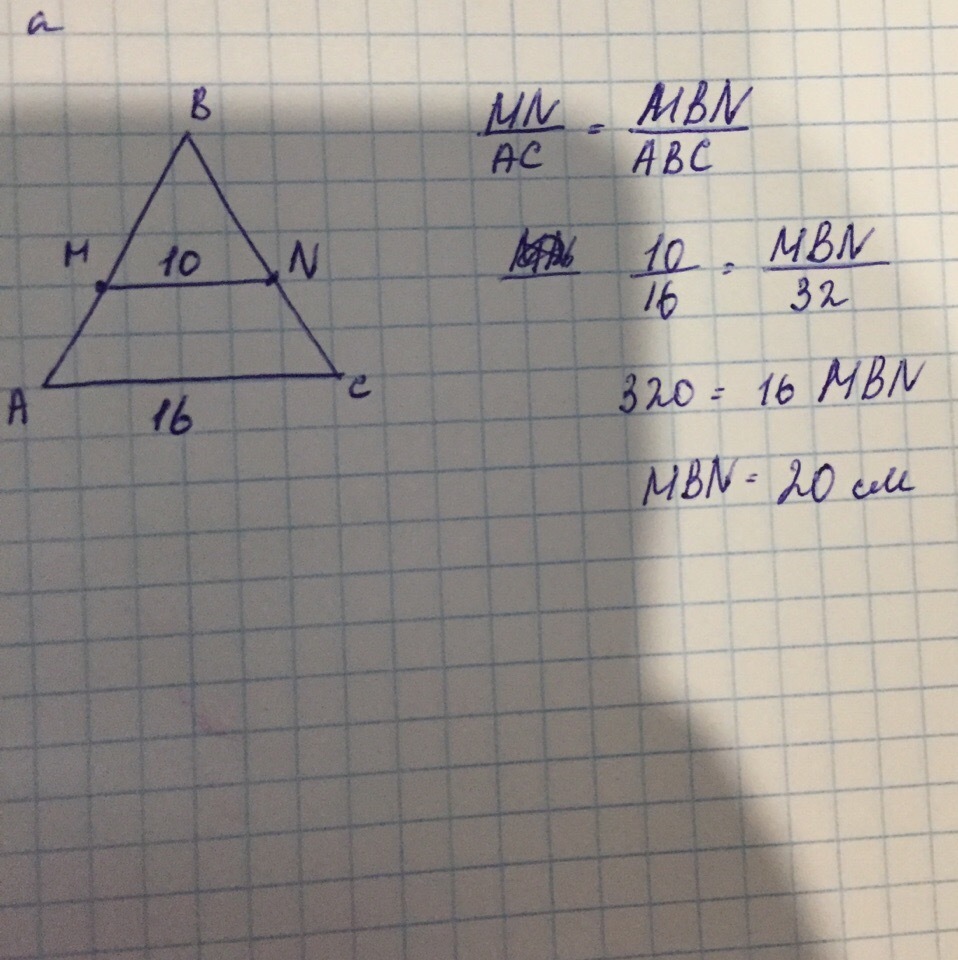 a
B
M 10 N
A 16 C
MN/AC = MBN/ABC
10/16 = MBN/32
320 = 16 MBN
MBN = 20 см